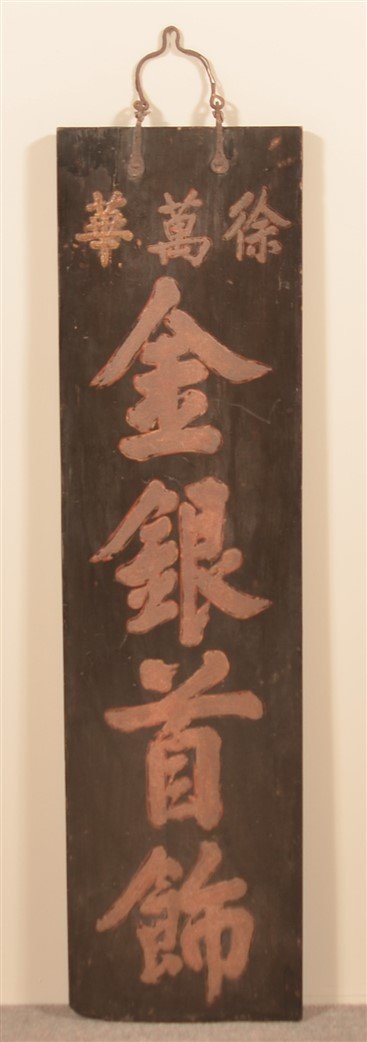 徐萬華
金銀首飾